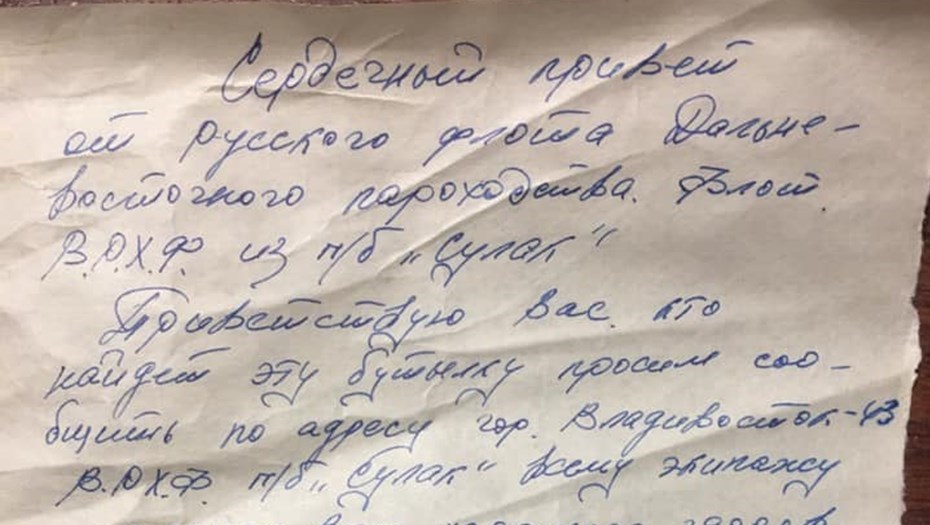 Сердечный привет
от русского флота Дальне-
восточного пароходства. Флот
В.Р.Х.Ф. из п/б „Сулак“
Приветствую вас кто
найдет эту бутылку просим соо-
бщить по адресу гор. Владивосток-43
В.Р.Х.Ф. п/б „Сулак“ всему экипажу